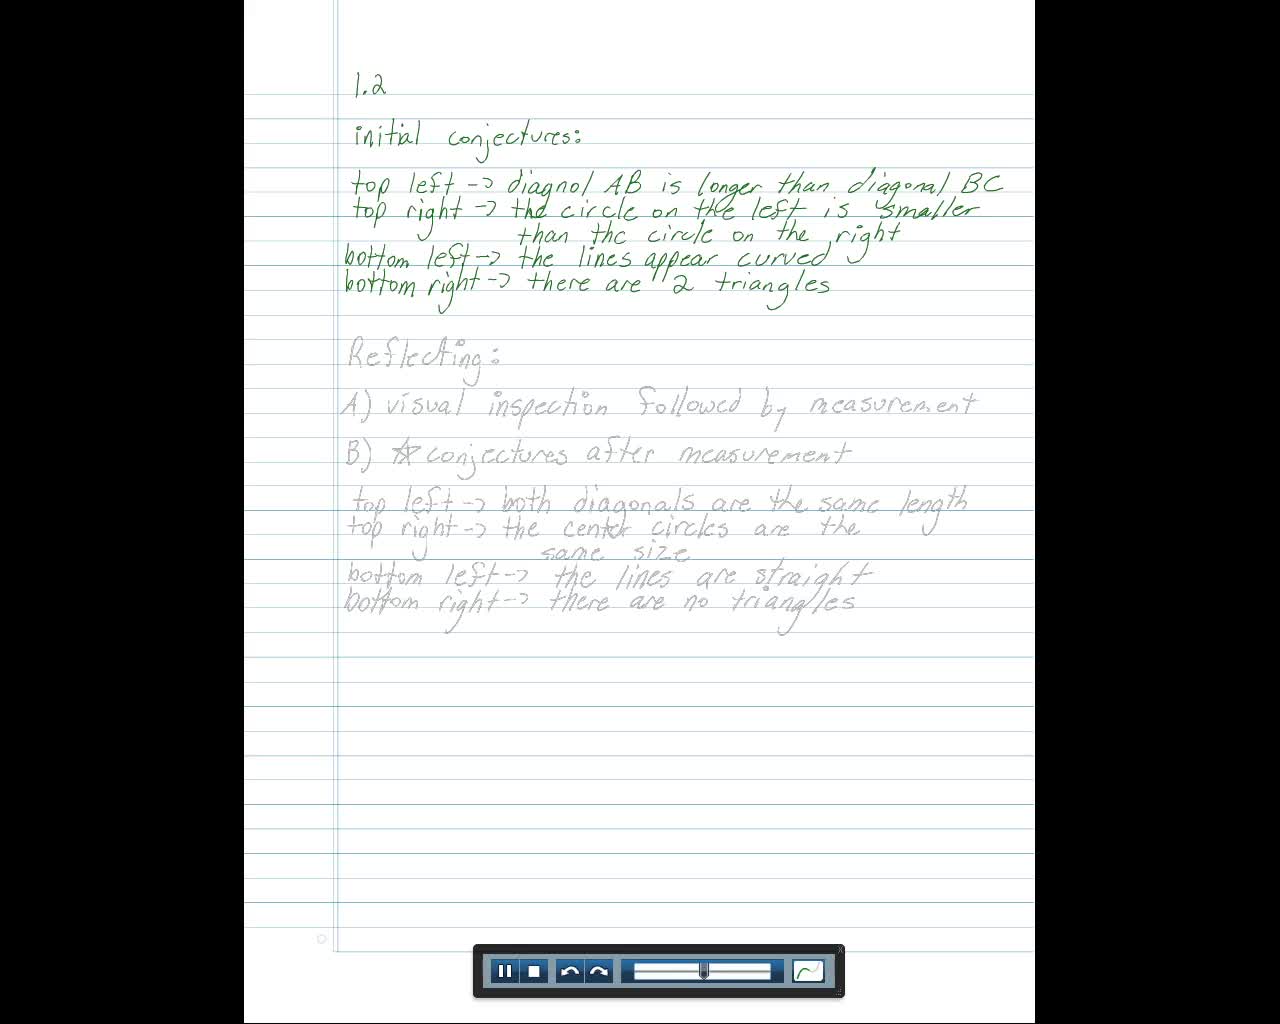 1.2
initial conjectures:
top left -> diagnol AB is longer than diagonal BC
top right -> the circle on the left is smaller
than the circle on the right
bottom left -> the lines appear curved
bottom right -> there are 2 triangles
Reflecting:
A) visual inspection followed by measurement
B) ☆ conjectures after measurement
top left -> both diagonals are the same length
top right -> the center circles are the
same size
bottom left -> the lines are straight
bottom right -> there are no triangles